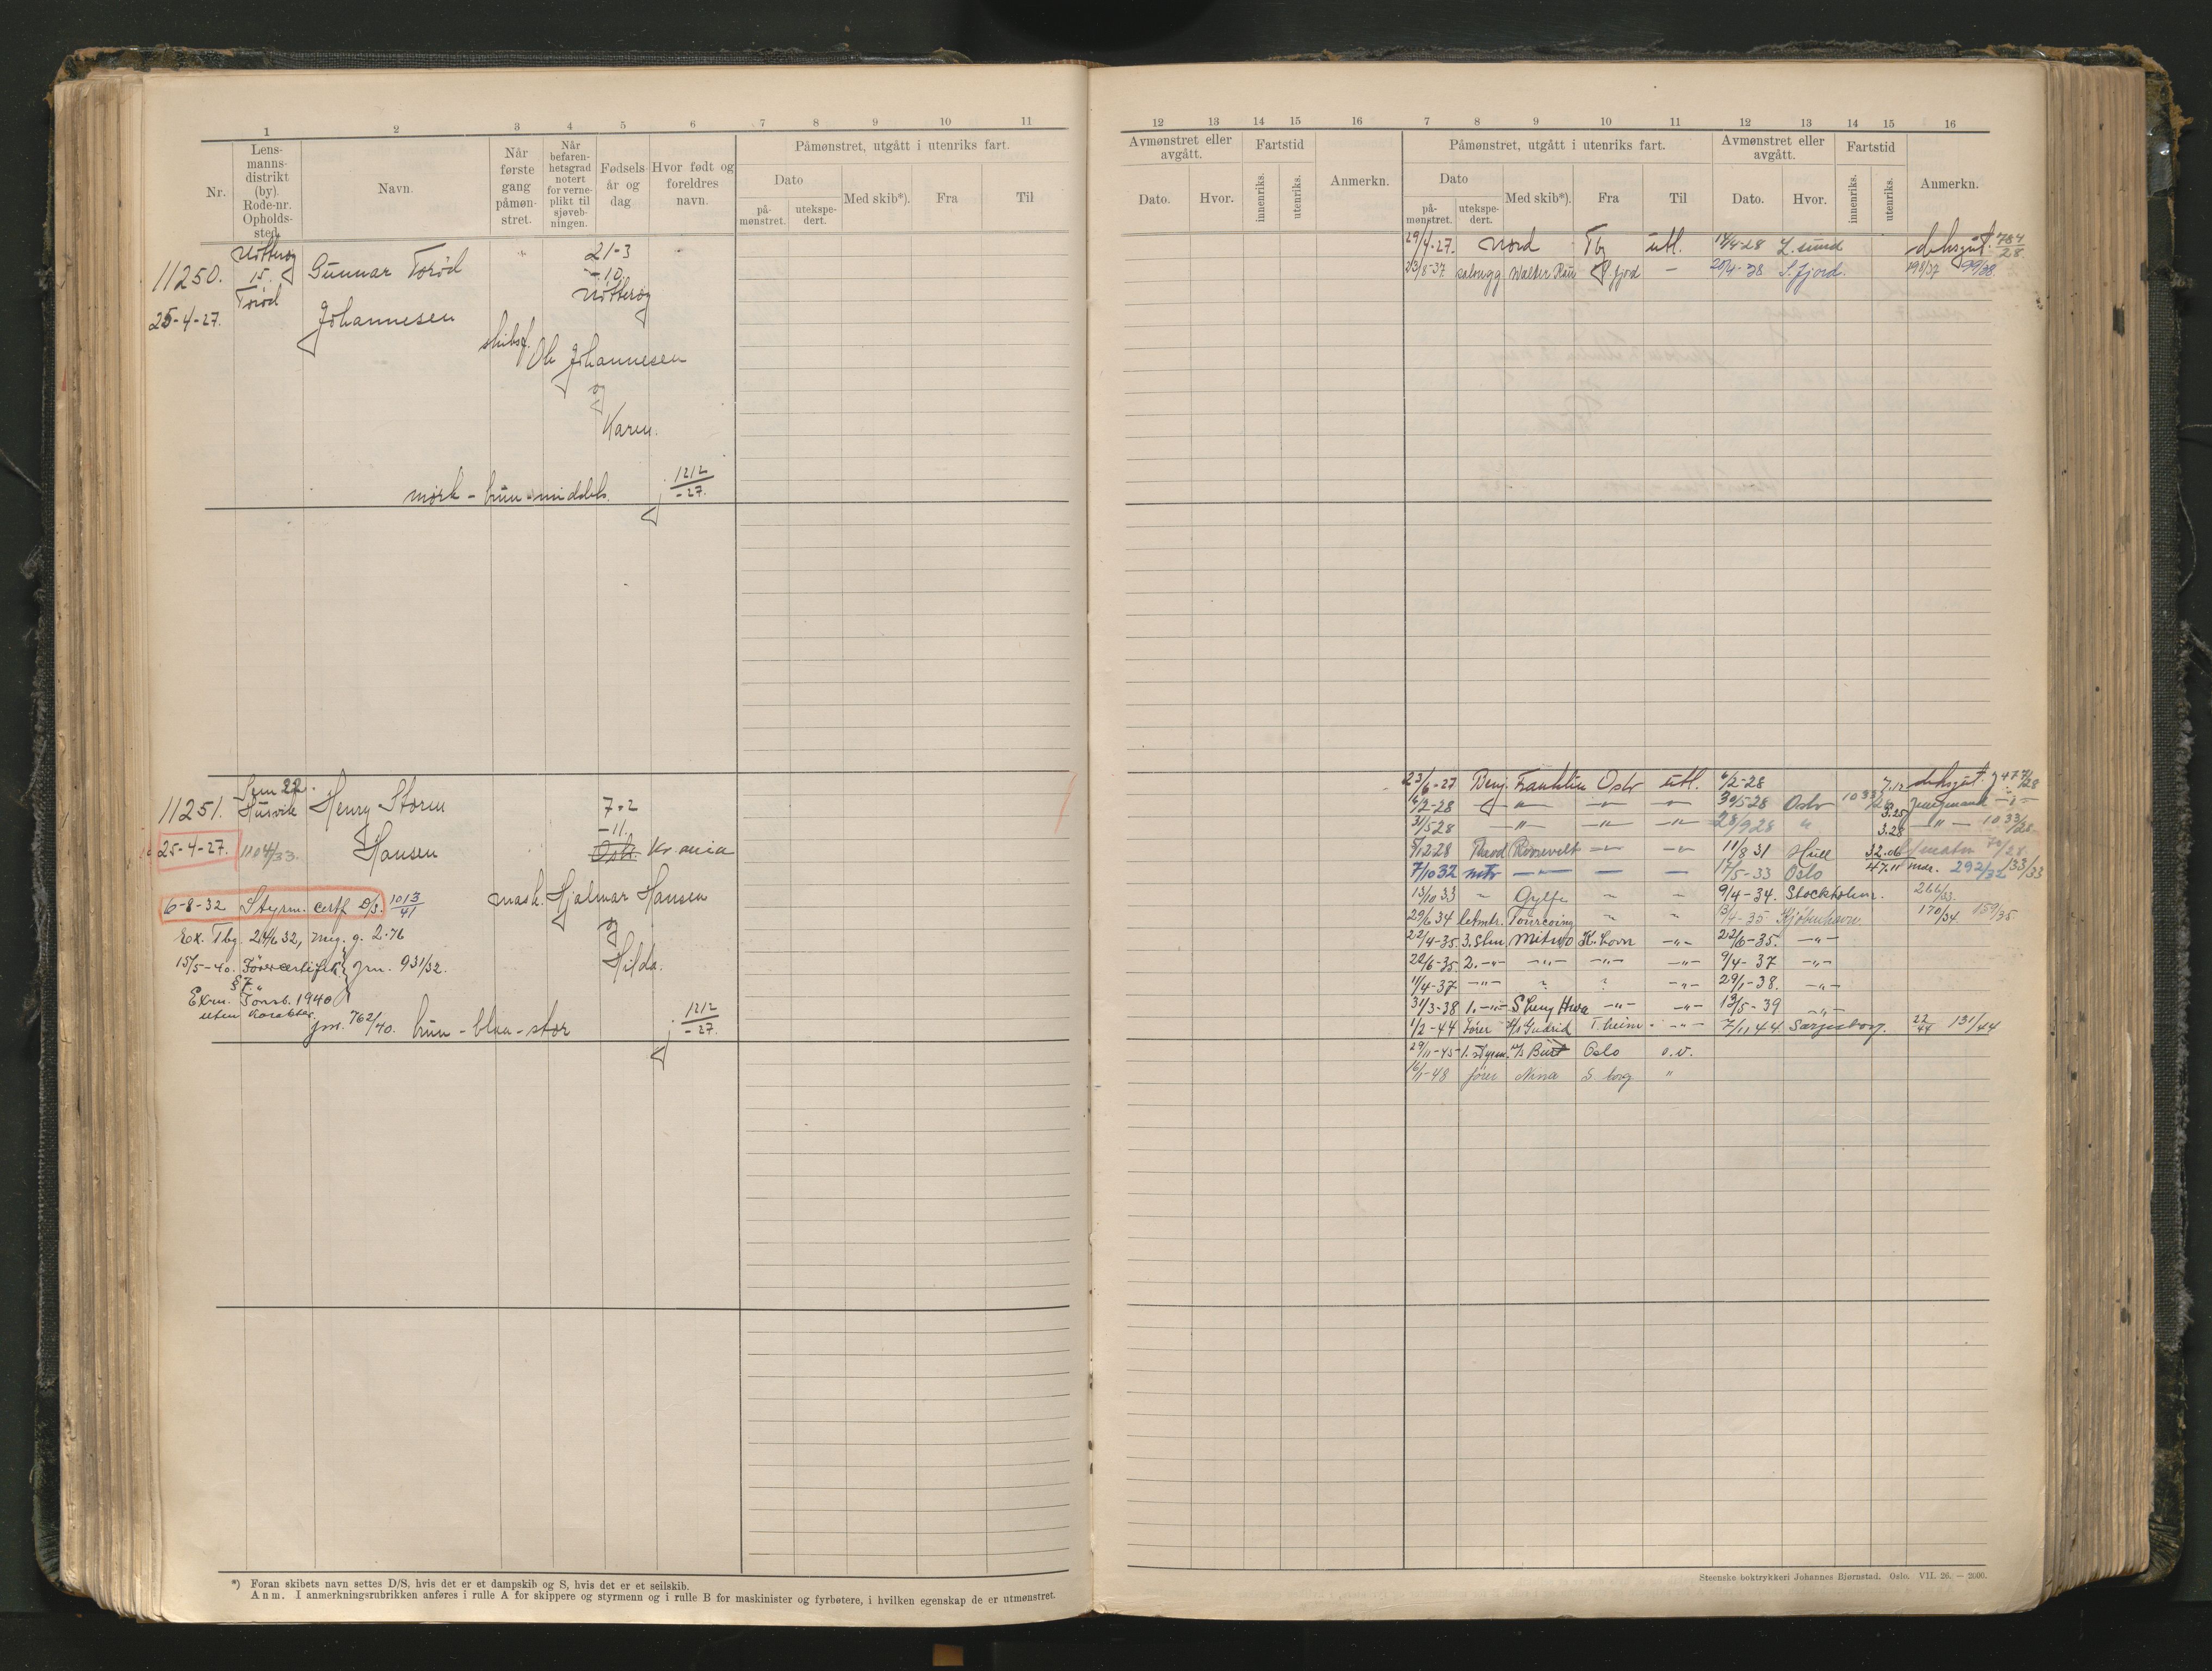 1 2 3 4 5 6 7 8 9 10 11
Nr.
Lens-
manns-
distrikt
(by).
Rode-nr.
Opholds-
sted.
Navn.
Når
første
gang
påmøn-
stret.
Når
befaren-
hetsgrad
notert
for verne-
plikt til
sjøveb-
ningen.
Fødsels-
år og
dag
Hvor født og
foreldres
navn.
Påmønstret, utgått i utenriks fart.
Dato
på-
mønstret.
utekspe-
dert.
Med skib*).
Fra
Til
11250.
25-4-27.
Nøtterøy
15.
Torød
Gunnar Torød
Johannesen
21-3
-10.
Nøtterøy
skibsf.
Ole Johannesen
og
Karen.
mørk - brun - middels. j. 1212/-27.
11251.
Sem 22.
Husvik
Henry Storm
25-4-27. 1104/33. Hansen
7-2
-11.
Oslo. Kr.ania
6-8-32 Styrm. certf D/S. 1013/41
mask. Hjalmar Hansen
og
Hilda.
Ex. Tbg. 24/6 32, mg. g. 2.76
15/5-40. Förercertifik. jrn. 931/32.
§ 7.
Exm. Tønsb. 1940
uten karakter.
jrn. 762/40. brun - blaa - stor j. 1212/-27.
*) Foran skibets navn settes D/S, hvis det er et dampskib og S, hvis det er et seilskib.
Anm. I anmerkningsrubrikken anføres i rulle A for skippere og styrmenn og i rulle B for maskinister og fyrbøtere, i hvilken egenskap de er utmønstret.
12 13 14 15 16 7 8 9 10 11 12 13 14 15 16
Avmønstret eller
avgått.
Dato.
Hvor.
Fartstid
innenriks.
utenriks.
Anmerkn.
Påmønstret, utgått i utenriks fart.
Dato
på-
mønstret.
utekspe-
dert.
Med skib*).
Fra
Til
Avmønstret eller
avgått.
Dato.
Hvor.
Fartstid
innenriks.
utenriks.
Anmerkn.
29/4-27. Nord Tbg utl. 14/4-28 L.sund deksgut. 784/28.
23/8-37. salongg. Walter Rau S.fjord - 20/4-38 S.fjord. 198/37 99/38.
23/6-27 Benj. Franklin Oslo utl. 6/2-28 7.12 deksgut. j 477/28
6/2-28 -"- -"- -"- 30/5-28 Oslo 1033/28 3.25 jungmand -"-
31/5 28 -"- -"- -"- 28/9 28 " 3.28 -"- 1033/28.
5/12 28 Theod. Roosevelt -"- -"- 11/8 31 Hull 32.06
7/10 32 mtr -"- - - 17/5-33 Oslo 47.11 mdr. 292/32 133/33
13/10 33 " Gylfe " " 9/4-34. Stockholm. 266/33.
29/6 34 letmtr. Tourcoing " " 13/4-35 Kjöbenhavn 170/34 159/35
22/4-35. 3. stm Mitwo K.havn -"- 22/6-35. -"-
22/6-35. 2. -"- -"- -"- -"- 9/4-37 -"-
11/4-37 -"- " " -"- 29/1-38. -"-
31/3-38 1. -"- Sheng Hwa -"- -"- 12/5-39 -"-
1/2-44 Fører D/S Gudrid T.heim -"- 7/11 44. Sarpsborg. 22/44 131/44
29/11-45 1. styrm. Oslo o.v.
16/1-48 fører Nina S.borg "
Steenske boktrykkeri Johannes Bjørnstad. Oslo. VII. 26. — 2000.